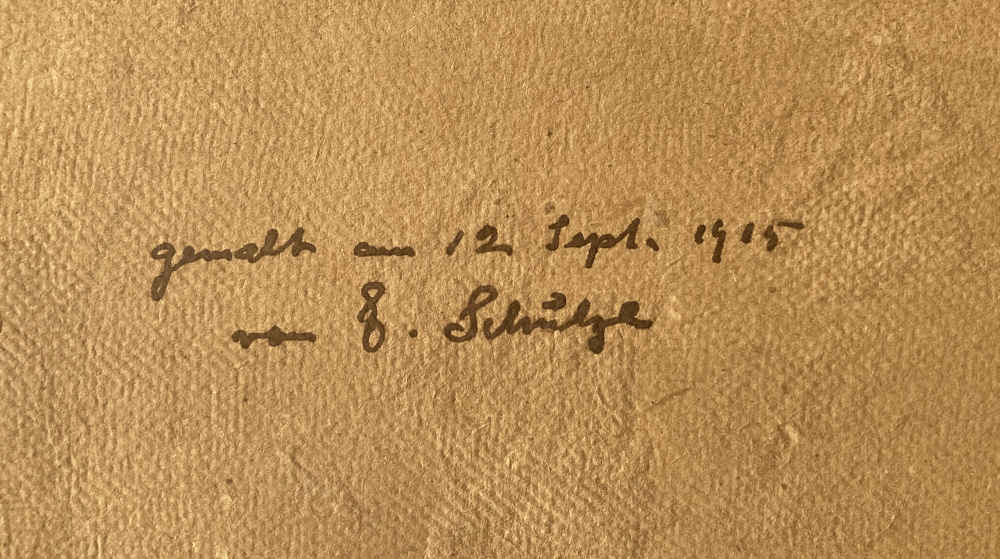 gemalt am 12 Sept. 1915
von E. Schützle